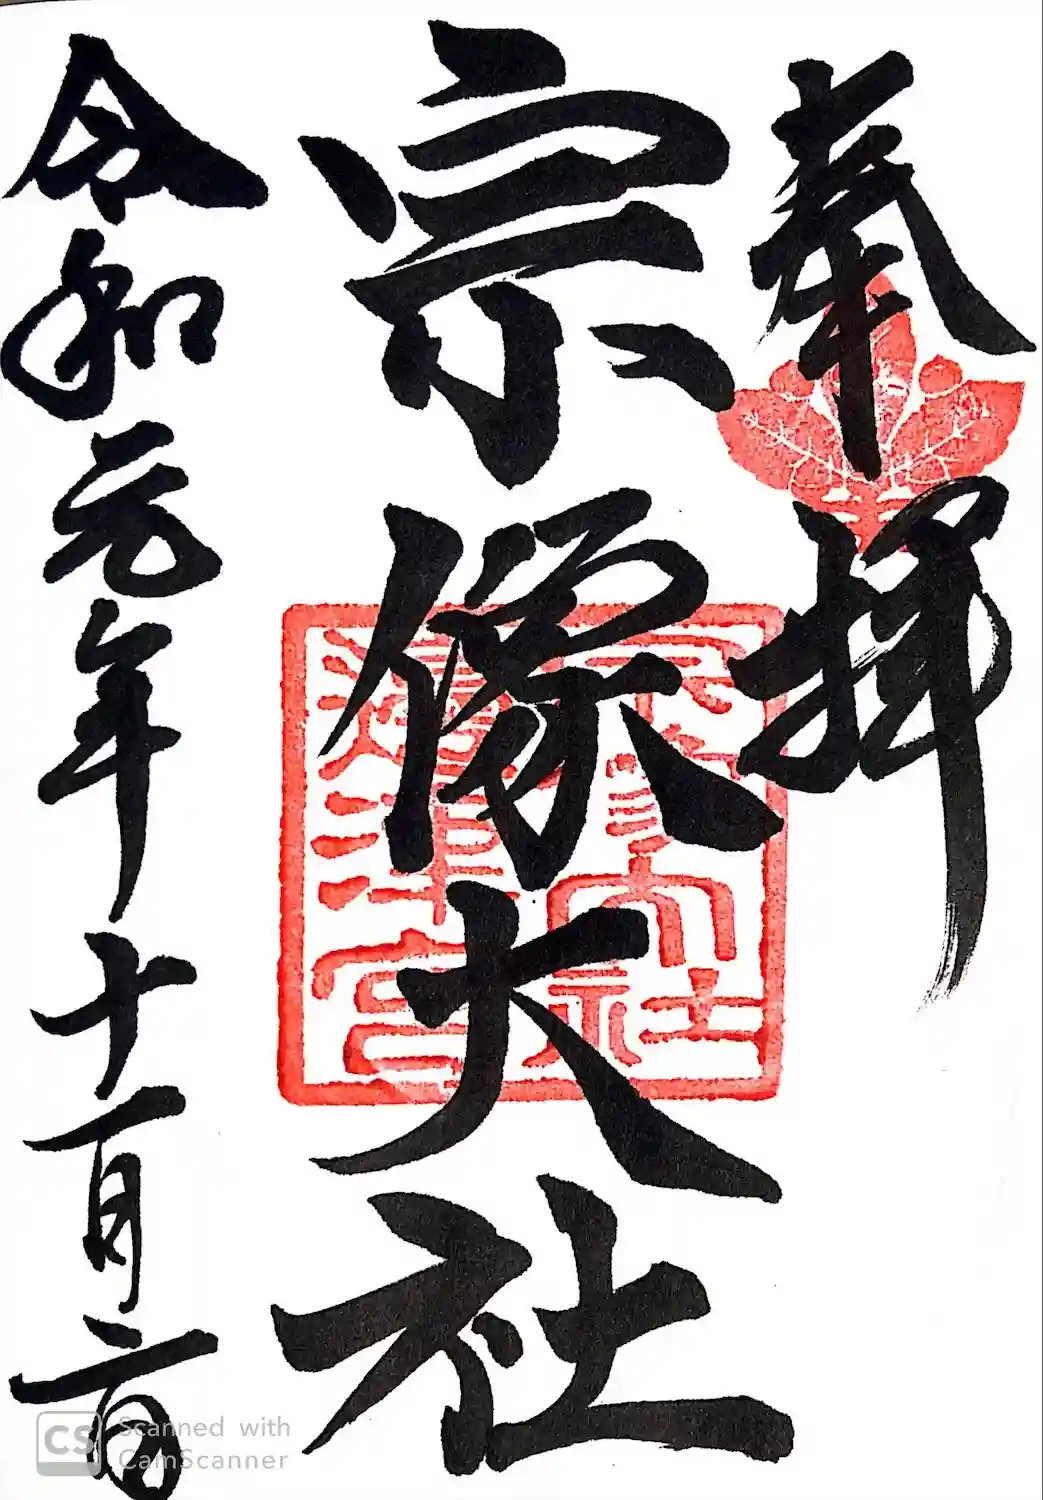 奉拝
宗像大社
令和元年十一月二日
宗像大社
邊津宮
CS Scanned with
CamScanner